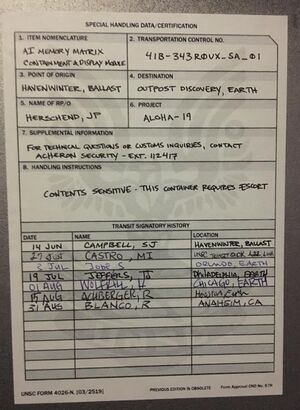 SPECIAL HANDLING DATA/CERTIFICATION
1. ITEM NOMENCLATURE
AI MEMORY MATRIX
CONTAINMENT & DISPLAY MODULE
2. TRANSPORTATION CONTROL NO.
41B-343R0UX-SA_01
3. POINT OF ORIGIN
HAVENWINTER, BALLAST
4. DESTINATION
OUTPOST DISCOVERY, EARTH
5. NAME OF RP/O
HERSCHEND, JP
6. PROJECT
ALOHA-19
7. SUPPLEMENTAL INFORMATION
FOR TECHNICAL QUESTIONS OR CUSTOMS INQUIRIES, CONTACT
ACHERON SECURITY - EXT. 112417
8. HANDLING INSTRUCTIONS
CONTENTS SENSITIVE - THIS CONTAINER REQUIRES ESCORT
TRANSIT SIGNATORY HISTORY
DATE NAME LOCATION
14 JUN CAMPBELL, SJ HAVENWINTER, BALLAST
27 JUN CASTRO, MI UNSC
2 JUL ORLANDO, EARTH
19 JUL PHILADELPHIA, EARTH
01 AUG CHICAGO, EARTH
15 AUG R Houston, Earth
31 AUG BLANCO, R ANAHEIM, CA
UNSC FORM 4026-N, [03/2519]
PREVIOUS EDITION IS OBSOLETE